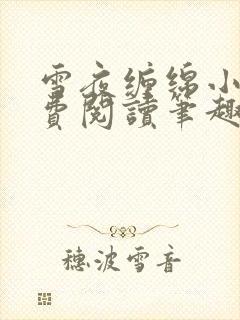 雪夜缠绵小
費閱讀筆趣
穗波雪音